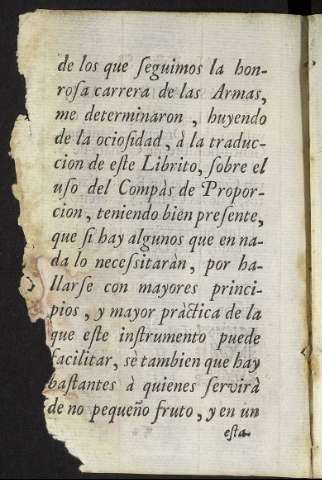 de los que ſeguimos la hon-
roſa carrera de las Armas,
me determinaron, huyendo
de la ocioſidad, à la traduc-
cion de eſte Librito, ſobre el
uſo del Compàs de Propor-
cion, teniendo bien preſente,
que ſi hay algunos que en na-
da lo neceſsitaràn, por ha-
llarſe con mayores princi-
pios, y mayor pràctica de la
que eſte inſtrumento puede
facilitar, sè tambien que hay
baſtantes à quienes ſervirà
de no pequeño fruto, y en un
eſta-